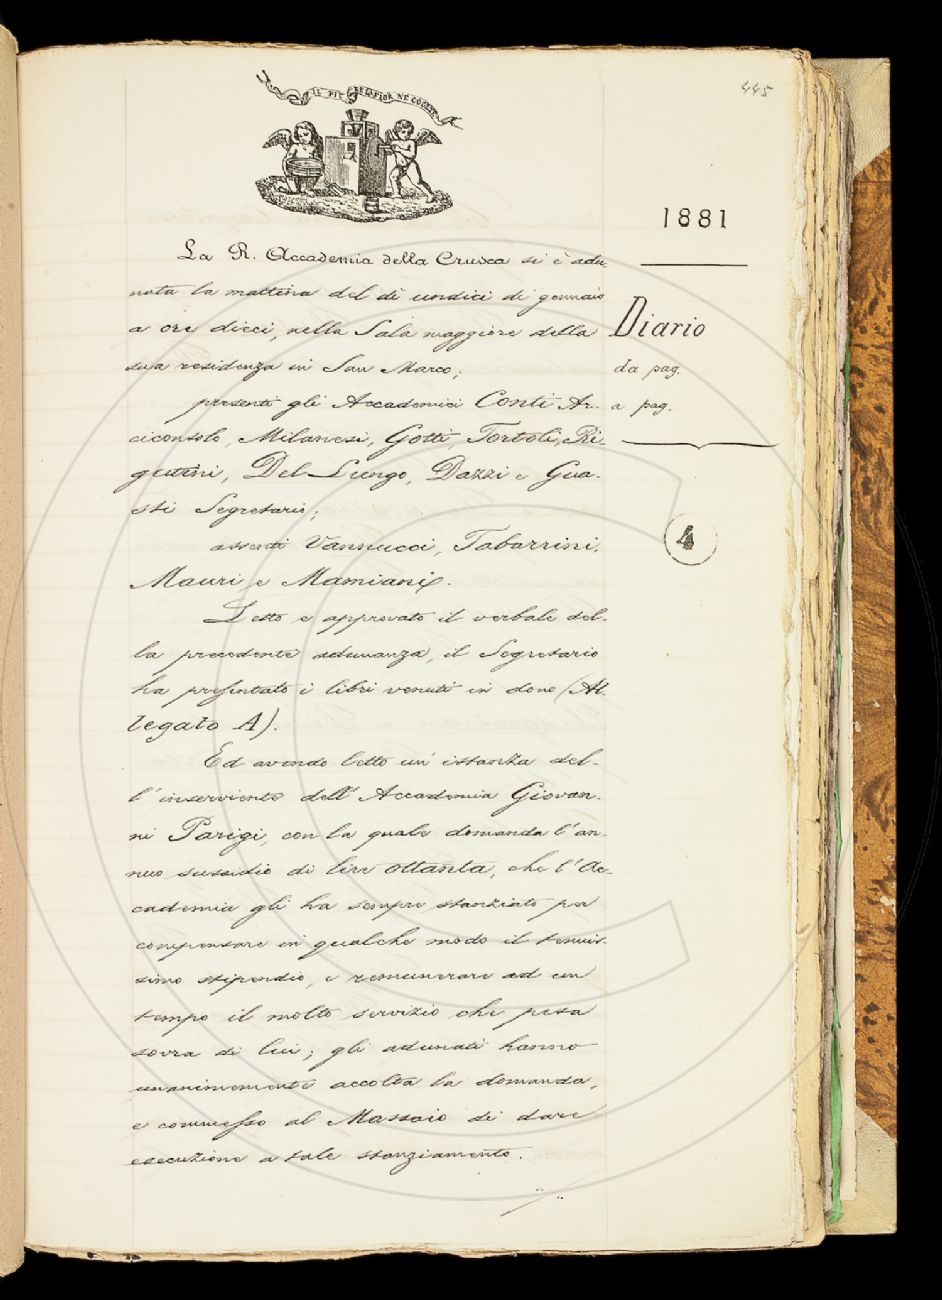 IL PIÙ BEL FIOR NE COGLIE
445
1881
Diario
da pag.
a pag.
4
La R. Accademia della Crusca si è adu-
nata la mattina del dì undici di gennaio
a ore dieci, nella Sala maggiore della
sua residenza in San Marco;
presenti gli Accademici Conti Ar-
ciconsolo, Milanesi, Gotti Tortoli, Ri-
gutini, Del Lungo, Dazzi e Gua-
sti Segretario;
assenti Vannucci, Tabarrini,
Mauri e Mamiani.
Letto e approvato il verbale del-
la precedente adunanza, il Segretario
ha presentato i libri venuti in dono (Al-
legato A).
Ed avendo letto un' istanza del-
l' inserviente dell' Accademia Giovan-
ni Parigi, con la quale domanda l' an-
nuo sussidio di lire ottanta, che l' Ac-
cademia gli ha sempre stanziato per
compensare in qualche modo il tenuis-
simo stipendio, e remunerare ad un
tempo il molto servizio che pesa
sovra di lui; gli adunati hanno
unanimemente accolta la domanda,
e commesso al Massaio di dare
esecuzione a tale stanziamento.